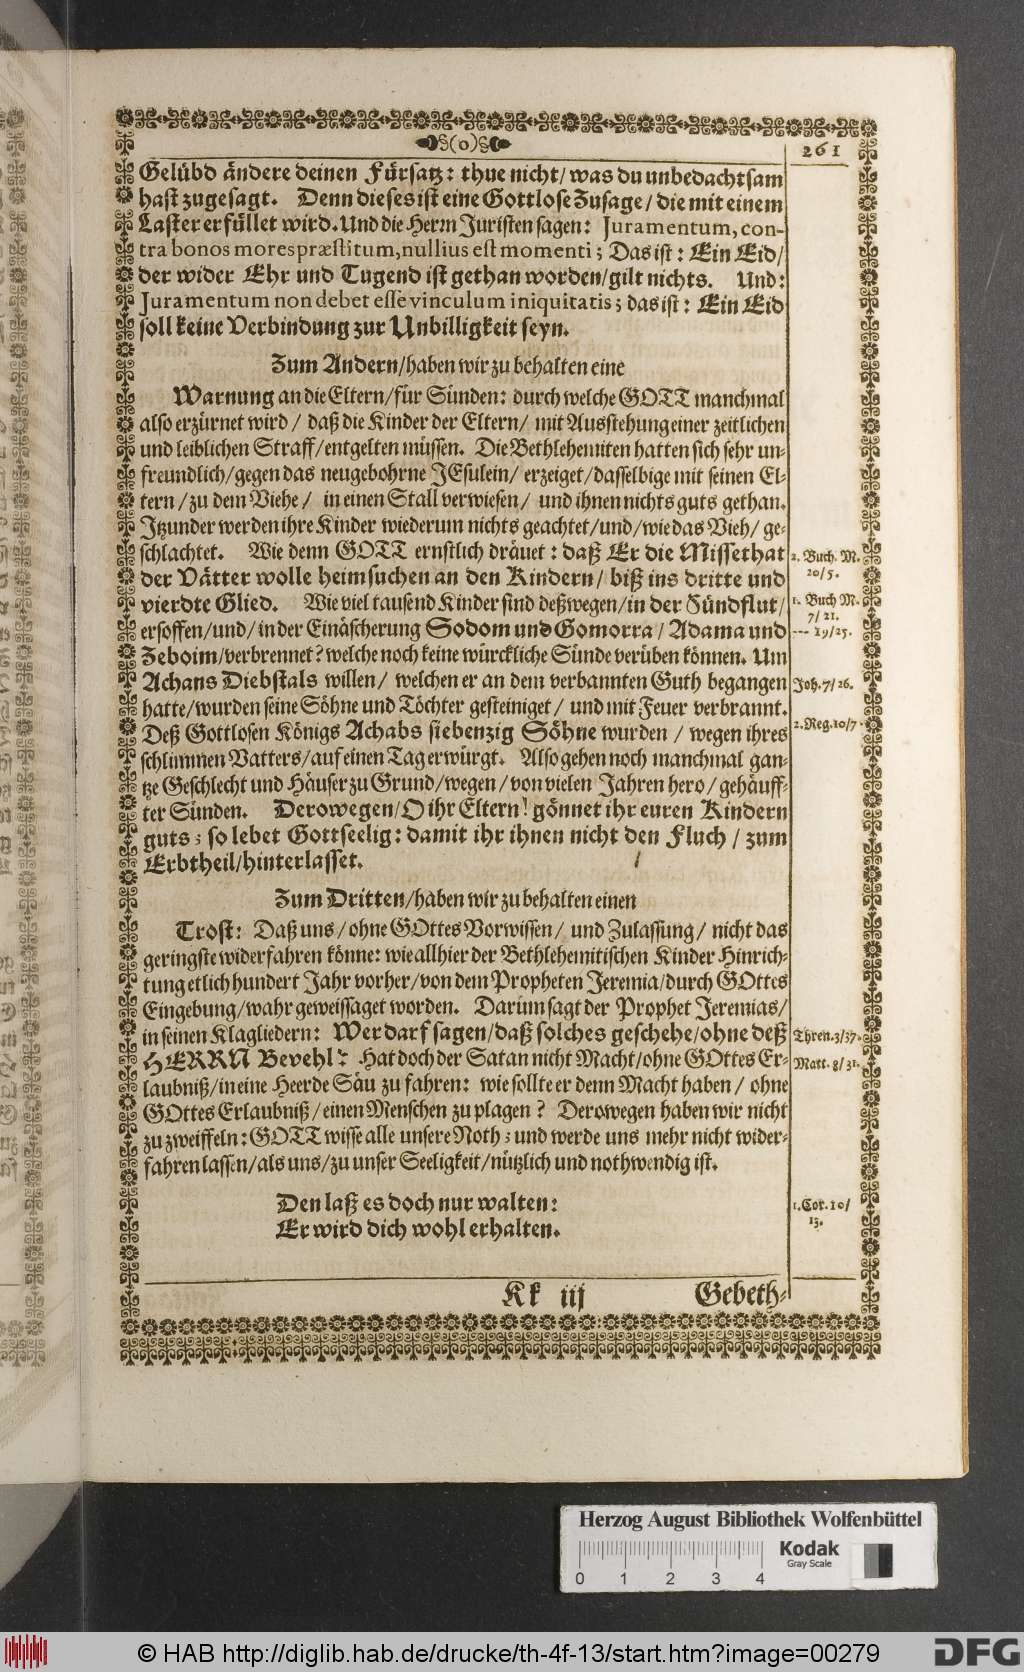 (o)
261
Gelübd ändere deinen Fürsatz: thue nicht/ was du unbedachtsam
hast zugesagt. Denn dieses ist eine Gottlose Zusage/ die mit einem
Laster erfüllet wird. Und die Herrn Juristen sagen: Juramentum, con-
tra bonos mores præstitum, nullius est momenti; Das ist: Ein Eid/
der wider Ehr und Tugend ist gethan worden/ gilt nichts. Und:
Juramentum non debet esse vinculum iniquitatis; das ist: Ein Eid
soll keine Verbindung zur Unbilligkeit seyn.
Zum Andern/ haben wir zu behalten eine
Warnung an die Eltern/ für Sünden: durch welche GOTT manchmal
also erzürnet wird/ daß die Kinder der Eltern/ mit Ausstehung einer zeitlichen
und leiblichen Straff/ entgelten müssen. Die Bethlehemiten hatten sich sehr un-
freundlich/ gegen das neugebohrne JEsulein/ erzeiget/ dasselbige mit seinen El-
tern/ zu dem Viehe/ in einen Stall verwiesen/ und ihnen nichts guts gethan.
Itzunder werden ihre Kinder wiederum nichts geachtet/ und/ wie das Vieh/ ge-
schlachtet. Wie denn GOTT ernstlich dräuet: daß Er die Missethat
der Vätter wolle heimsuchen an den Kindern/ biß ins dritte und
vierdte Glied. Wie viel tausend Kinder sind deßwegen/ in der Sündflut/
ersoffen/ und/ in der Einäscherung Sodom und Gomorra/ Adama und
Zeboim/ verbrennet? welche noch keine würckliche Sünde verüben können. Um
Achans Diebstals willen/ welchen er an dem verbannten Guth begangen
hatte/ wurden seine Söhne und Töchter gesteiniget/ und mit Feuer verbrannt.
Deß Gottlosen Königs Achabs siebenzig Söhne wurden/ wegen ihres
schlimmen Vatters/ auf einen Tag erwürgt. Also gehen noch manchmal gan-
tze Geschlecht und Häuser zu Grund/ wegen/ von vielen Jahren hero/ gehäuff-
ter Sünden. Derowegen/ O ihr Eltern! gönnet ihr euren Kindern
guts; so lebet Gottseelig: damit ihr ihnen nicht den Fluch/ zum
Erbtheil/ hinterlasset.
Zum Dritten/ haben wir zu behalten einen
Trost: Daß uns/ ohne GOttes Vorwissen/ und Zulassung/ nicht das
geringste widerfahren könne: wie allhier der Bethlehemitischen Kinder Hinrich-
tung etlich hundert Jahr vorher/ von dem Propheten Jeremia/ durch GOttes
Eingebung/ wahr geweissaget worden. Darüm sagt der Prophet Jeremias/
in seinen Klagliedern: Wer darf sagen/ daß solches geschehe/ ohne deß
HERRN Bevehl? Hat doch der Satan nicht Macht/ ohne GOttes Er-
laubniß/ in eine Heerde Säu zu fahren: wie sollte er denn Macht haben/ ohne
GOttes Erlaubniß/ einen Menschen zu plagen? Derowegen haben wir nicht
zu zweiffeln: GOTT wisse alle unsere Noth; und werde uns mehr nicht wider-
fahren lassen/ als uns/ zu unser Seeligkeit/ nützlich und nothwendig ist.
Den laß es doch nur walten:
Er wird dich wohl erhalten.
2. Buch. M.
20/5.
1. Buch M.
7/21.
--- 19/25.
Jos. 7/26.
2. Reg. 10/7.
Thren. 3/37.
Matt. 8/31.
1. Cor. 10/
13.
Kk iij
Gebeth-
Herzog August Bibliothek Wolfenbüttel
Kodak
Gray Scale
0 1 2 3 4
© HAB http://diglib.hab.de/drucke/th-4f-13/start.htm?image=00279
DFG